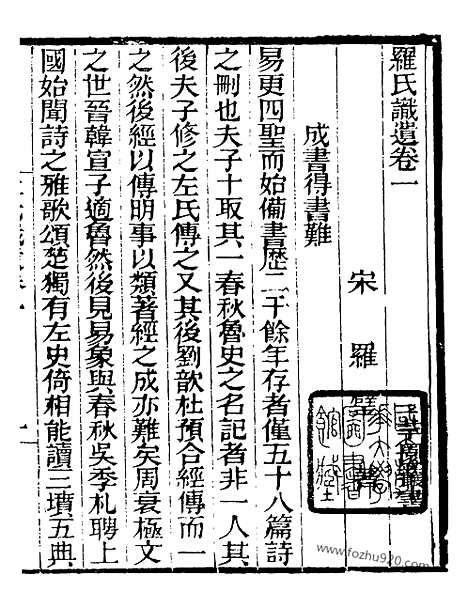 羅氏識遺卷一
宋 羅
成書得書難
易更四聖而始備書歷二千餘年存者僅五十八篇詩
之刪也夫子十取其一春秋魯史之名記者非一人其
後夫子修之左氏傳之又其後劉歆杜預合經傳而一
之然後經以傳明事以類著經之成亦難矣周衰極文
之世晉韓宣子適魯然後見易象與春秋吳季札聘上
國始聞詩之雅歌頌楚獨有左史倚相能讀三墳五典
www.fozhu920.com